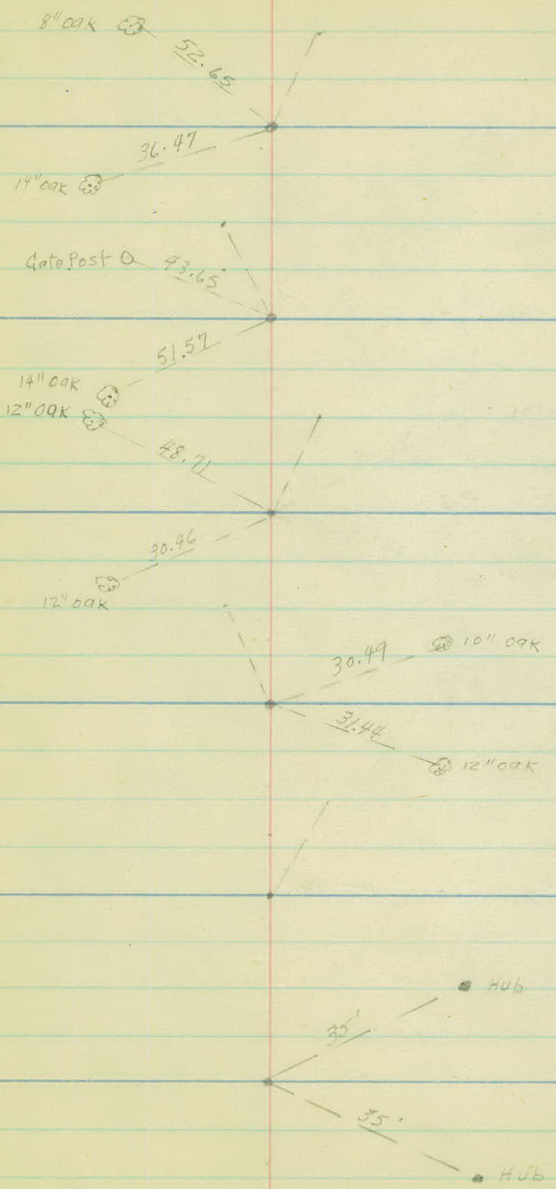 8" oak
52.65
36.47
14" oak
Gate Post
43.65
51.57
14" oak
12" oak
48.71
30.46
12" oak
30.49
10" oak
31.44
12" oak
Hub
35'
35'
Hub